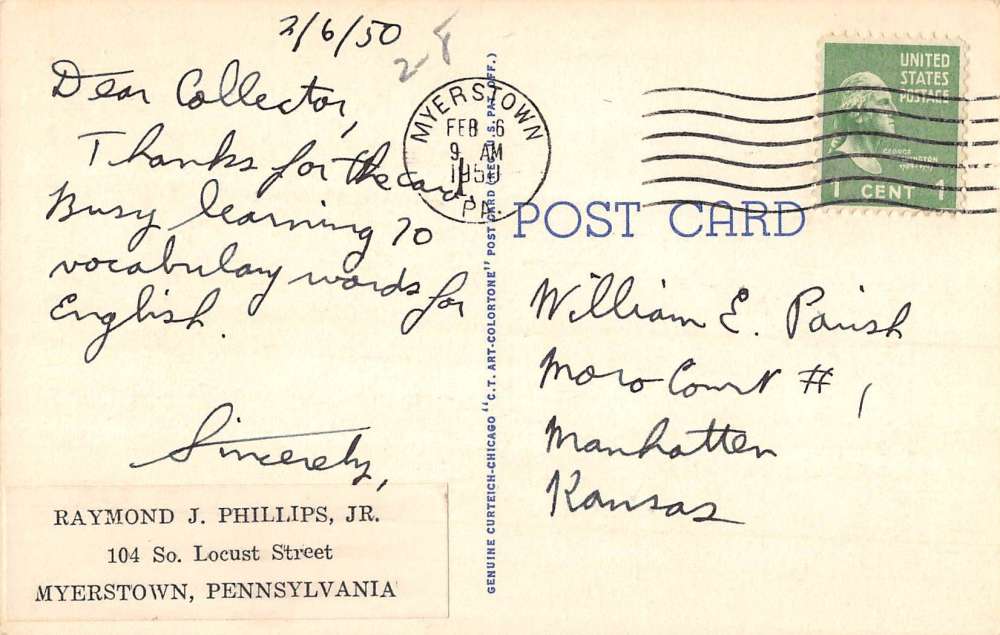 2/6/50
2-8
Dear Collector,
Thanks for the card.
Busy learning 70
vocabulary words for
English.
Sincerely,
RAYMOND J. PHILLIPS, JR.
104 So. Locust Street
MYERSTOWN, PENNSYLVANIA
GENUINE CURTEICH-CHICAGO "C.T. ART-COLORTONE" POST CARD (REG. U.S. PAT. OFF.)
MYERSTOWN
FEB 6
9 AM
1950
PA.
UNITED
STATES
POSTAGE
GEORGE
WASHINGTON
1 CENT 1
POST CARD
William E. Parish
Moro Court # 1
Manhatten
Kansas